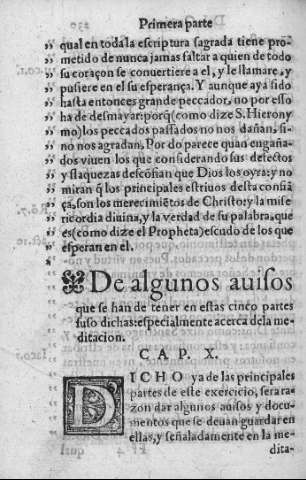 Primera parte
„ qual en toda la escriptura sagrada tiene pro-
„ metido de nunca jamas faltar a quien de todo
„ su coraçon se conuertiere a el, y le llamare, y
„ pusiere en el su esperança. Y aunque aya sido
„ hasta entonces grande peccador, no por esso
„ ha de desmayar: porq̃ (como dize S. Hierony
„ mo) los peccados passados no nos dañan, si-
„ no nos agradan. Por do parece quan engaña-
„ dos viuen los que considerando sus defectos
„ y flaquezas desconfian que Dios los oyra: y no
„ miran q̃ los principales estriuos desta confiã
„ ça, son los merecimiẽtos de Christo: y la mise
„ ricordia diuina, y la verdad de su palabra, que
„ es (como dize el Propheta) escudo de los que
„ esperan en el.
De algunos auisos
que se han de tener en estas cinco partes
suso dichas: especialmente acerca de la me-
ditacion.
CAP. X.
DICHO ya de las principales
partes de este exercicio, sera ra-
zon dar algunos auisos y docu-
mentos que se deuan guardar en
ellas, y señaladamente en la me-
dita-